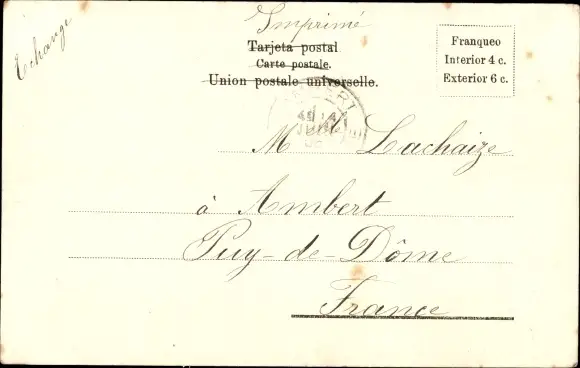 Echange
Imprimé
Tarjeta postal
Carte postale.
Union postale universelle.
Franqueo
Interior 4 c.
Exterior 6 c.
Lachaize
à Ambert
Puy-de-Dôme
France